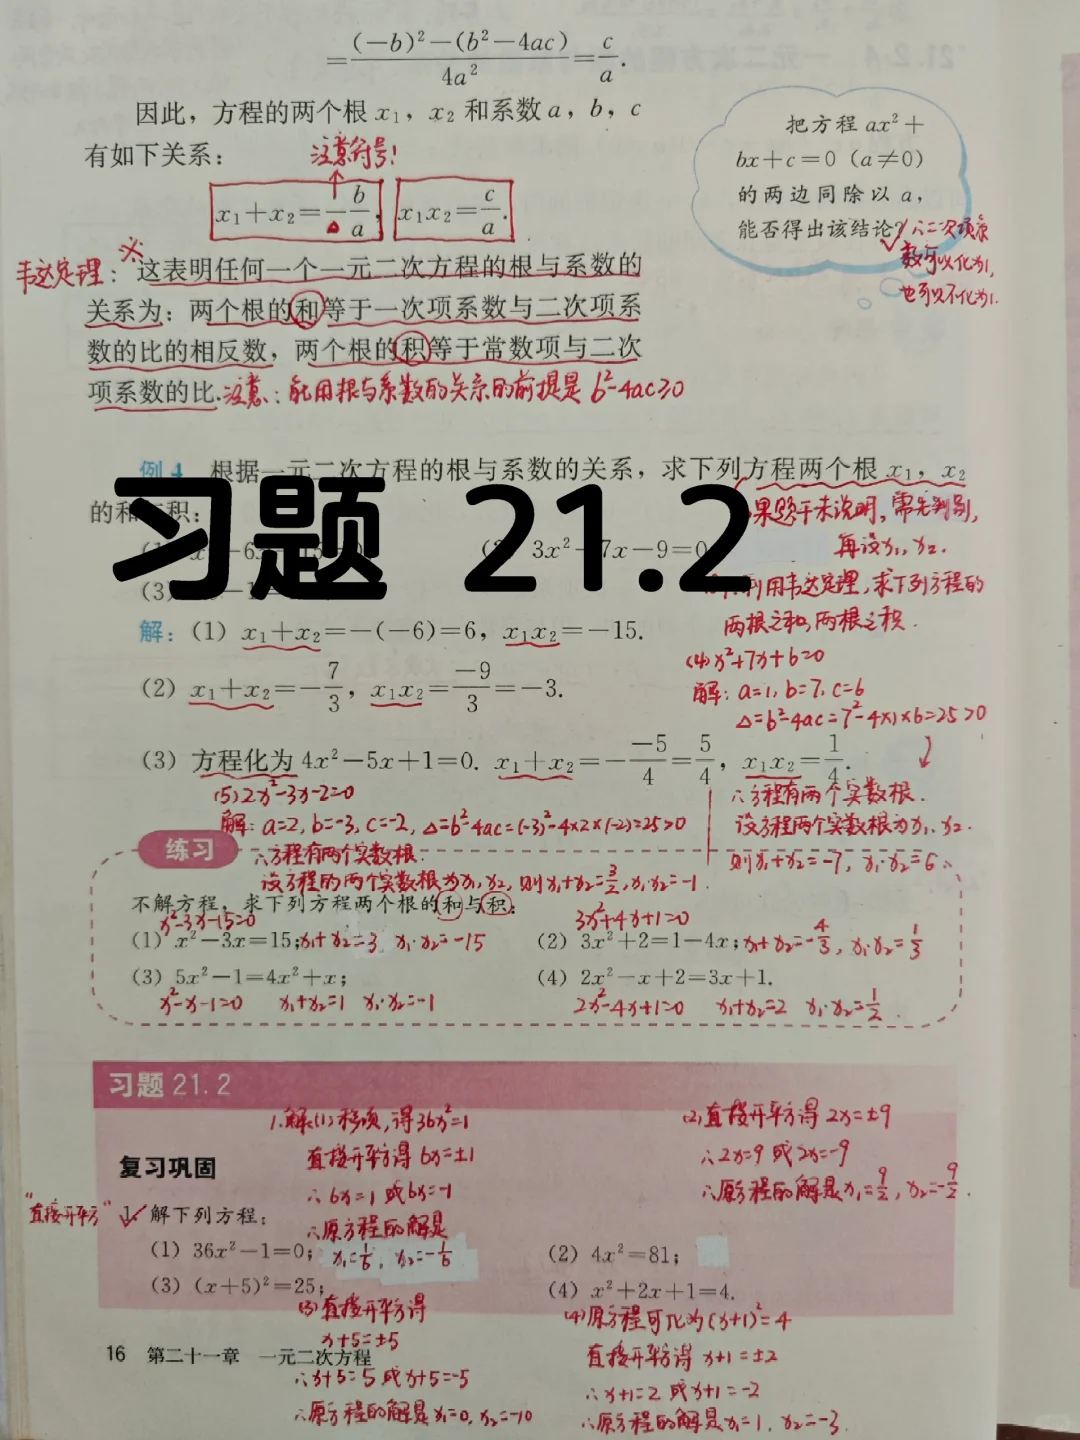 =\frac{(-b)²-(b²-4ac)}{4a²}=\frac{c}{a}.
因此，方程的两个根 x₁，x₂ 和系数 a，b，c
有如下关系：
注意符号!
x₁+x₂=-\frac{b}{a}，x₁x₂=\frac{c}{a}.
把方程 ax²+
bx+c=0（a≠0）
的两边同除以 a，
能否得出该结论?
∴二次项系
数可以化为1,
也可以不化为1.
韦达定理：※这表明任何一个一元二次方程的根与系数的
关系为：两个根的和等于一次项系数与二次项系
数的比的相反数，两个根的积等于常数项与二次
项系数的比.注意：能用根与系数的关系的前提是 b²-4ac≥0
例4 根据一元二次方程的根与系数的关系，求下列方程两个根 x₁，x₂
的和 积：
习题 21.2
3x²+7x-9=0
(3)
果题干未说明，需先判别，
再设x₁、x₂.
利用韦达定理，求下列方程的
两根之和，两根之积.
解：(1) x₁+x₂=-(-6)=6，x₁x₂=-15.
(4) x²+7x+6=0
解：a=1, b=7, c=6
Δ=b²-4ac=7²-4×1×6=25>0
(2) x₁+x₂=-\frac{7}{3}，x₁x₂=\frac{-9}{3}=-3.
(3) 方程化为 4x²-5x+1=0. x₁+x₂=-\frac{-5}{4}=\frac{5}{4}，x₁x₂=\frac{1}{4}.
∴方程有两个实数根.
设方程两个实数根为x₁、x₂.
则x₁+x₂=-7, x₁·x₂=6.
(5) 2x²-3x-2=0
解：a=2, b=-3, c=-2, Δ=b²-4ac=(-3)²-4×2×(-2)=25>0
∴方程有两个实数根.
设方程的两个实数根为x₁,x₂, 则x₁+x₂=\frac{3}{2}, x₁·x₂=-1.
练习
不解方程，求下列方程两个根的和与积：
x²-3x-15=0
3x²+4x+1=0
(1) x²-3x=15; x₁+x₂=3 x₁·x₂=-15
(2) 3x²+2=1-4x; x₁+x₂=-\frac{4}{3}, x₁·x₂=\frac{1}{3}
(3) 5x²-1=4x²+x;
(4) 2x²-x+2=3x+1.
x²-x-1=0 x₁+x₂=1 x₁·x₂=-1
2x²-4x+1=0 x₁+x₂=2 x₁·x₂=\frac{1}{2}.
习题 21.2
复习巩固
1.解：(1)移项，得36x²=1
直接开平方得 6x=±1
∴6x=1 或6x=-1
∴原方程的解是
x₁=\frac{1}{6}, x₂=-\frac{1}{6}
(2)直接开平方得 2x=±9
∴2x=9 或2x=-9
∴原方程的解是x₁=\frac{9}{2}, x₂=-\frac{9}{2}.
“直接开平方”
1. 解下列方程：
(1) 36x²-1=0;
(2) 4x²=81;
(3) (x+5)²=25;
(4) x²+2x+1=4.
(3)直接开平方得
x+5=±5
∴x+5=5 或x+5=-5
∴原方程的解是x₁=0, x₂=-10
(4)原方程可化为(x+1)²=4
直接开平方得 x+1=±2
∴x+1=2 或x+1=-2
∴原方程的解是x₁=1, x₂=-3.
16 第二十一章 一元二次方程